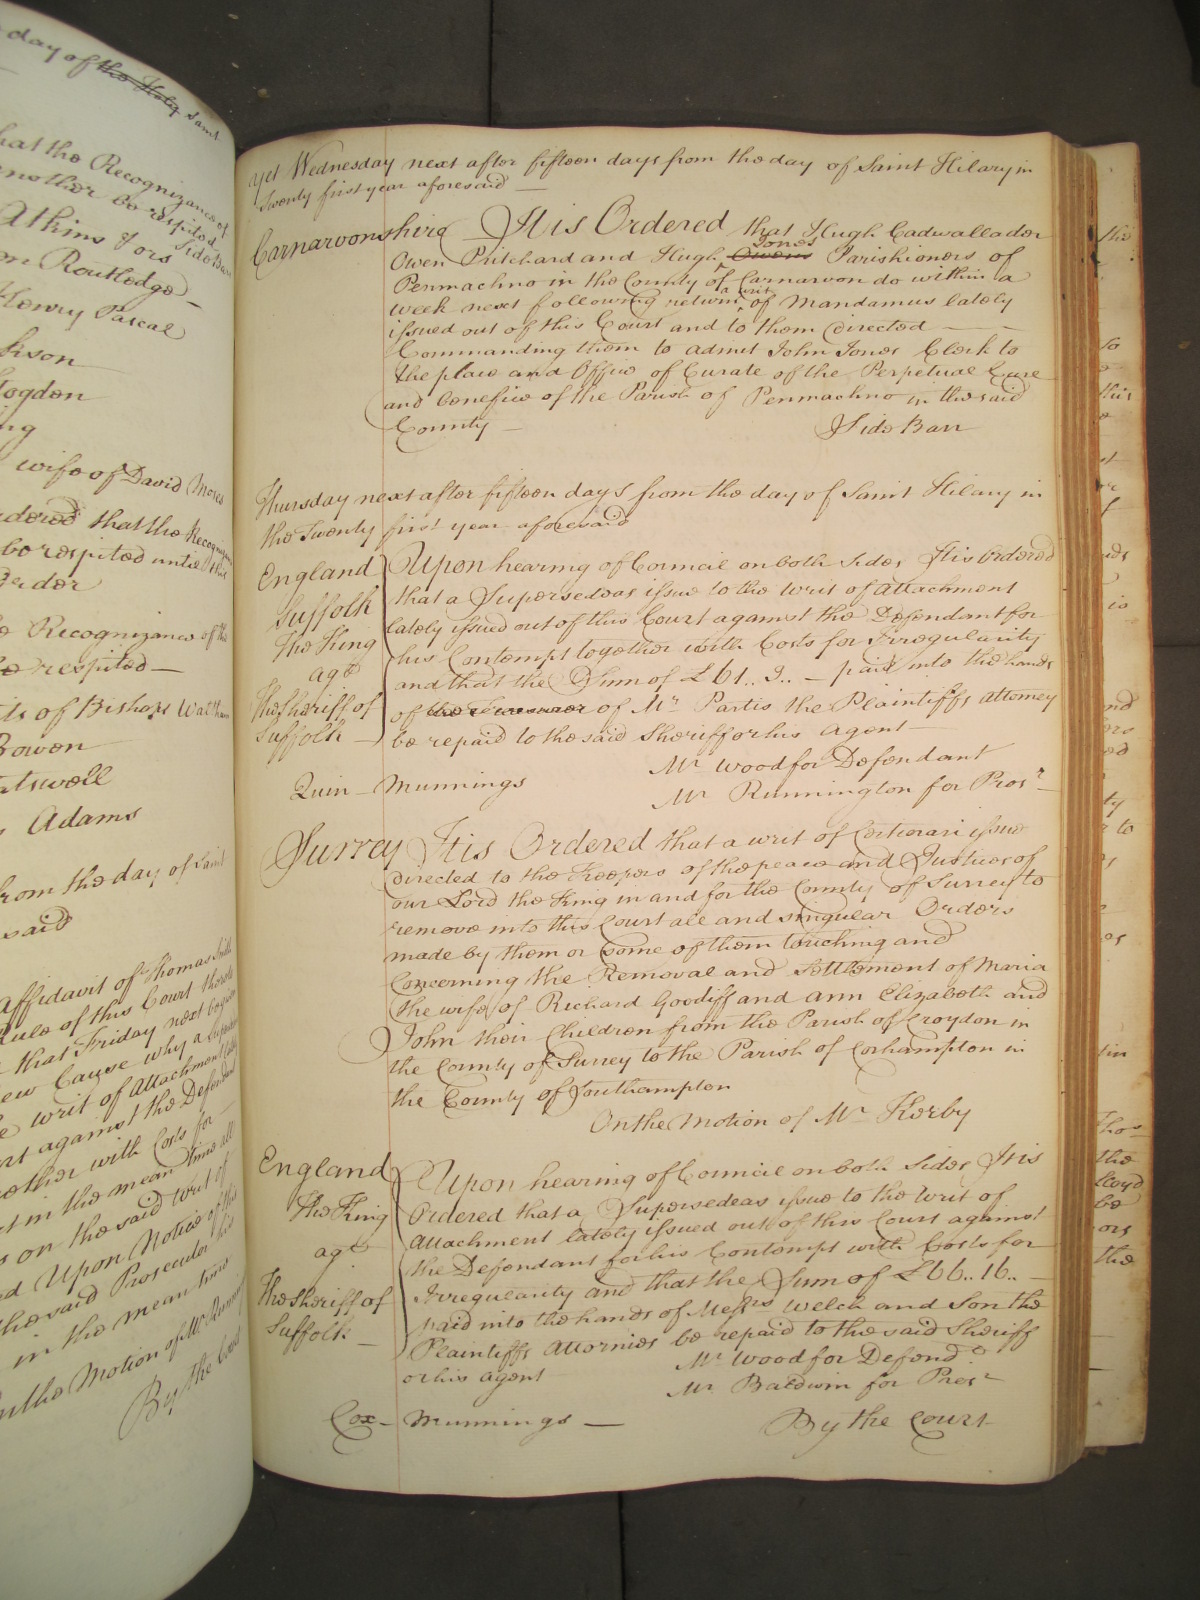 day of the Holy Saint
that the Recognizance of
another be respited
Side Barr
Atkins Jors
on Routledge
Henry Pascal
kson
Hogden
ng
wife of David Moses
dered that the Recogni
be respited until this
Order
e Recognizance of the
be respited
ts of Bishops Waltham
Bowen
atswell
s Adams
from the day of Saint
said
affidavit of Thomas
Rule of this Court
that Friday next
ew Cause why a
e writ of Attachment
rt against the Defendant
ether with Costs for
t in the mean time all
s on the said writ of
d Upon Notice of this
the said Prosecutor
in the mean time
n the Motion of Mr. Runnin
By the Court
yet Wednesday next after fifteen days from the day of Saint Hilary in
Twenty first year aforesaid
Carnarvonshire It is Ordered that Hugh Cadwallader
Owen Pritchard and Hugh Owens Jones Parishioners of
Penmachno in the County of Carnarvon do within a
week next following return a writ of Mandamus lately
issued out of this Court and to them directed
Commanding them to admit John Jones Clerk to
the place and Office of Curate of the Perpetual Cure
and benefice of the Parish of Penmachno in the said
County
Side Barr
Thursday next after fifteen days from the day of Saint Hilary in
the Twenty first year aforesaid
England
Suffolk
The King
agt
The Sheriff of
Suffolk
Upon hearing of Council on both sides It is Ordered
that a Supersedeas issue to the writ of attachment
lately issued out of this Court against the Defendant for
his Contempt together with Costs for Irregularity
and that the Sum of £61..3.. paid into the hands
of of Mr Partis the Plaintiffs attorney
be repaid to the said Sheriff or his agent
Mr Wood for Defendant
Quin Munnings
Mr Runnington for Prosr
Surrey It is Ordered that a writ of Certiorari issue
directed to the Keepers of the peace and Justices of
our Lord the King in and for the County of Surrey to
remove into this Court all and singular Orders
made by them or some of them touching and
Concerning the Removal and Settlement of Maria
the wife of Richard Goodiff and Ann Elizabeth and
John their Children from the Parish of Croydon in
the County of Surrey to the Parish of Corhampton in
the County of Southampton
On the Motion of Mr Kerby
England
The King
agt
The Sheriff of
Suffolk
Upon hearing of Council on both sides It is
Ordered that a Supersedeas issue to the writ of
attachment lately issued out of this Court against
the Defendant for his Contempt with Costs for
Irregularity and that the Sum of £66..16..
paid into the hands of Messrs Welch and Son the
Plaintiffs Attornies be repaid to the said Sheriff
or his agent
Mr Wood for Defend
Mr Baldwin for Prosr
Cox Munnings
By the Court